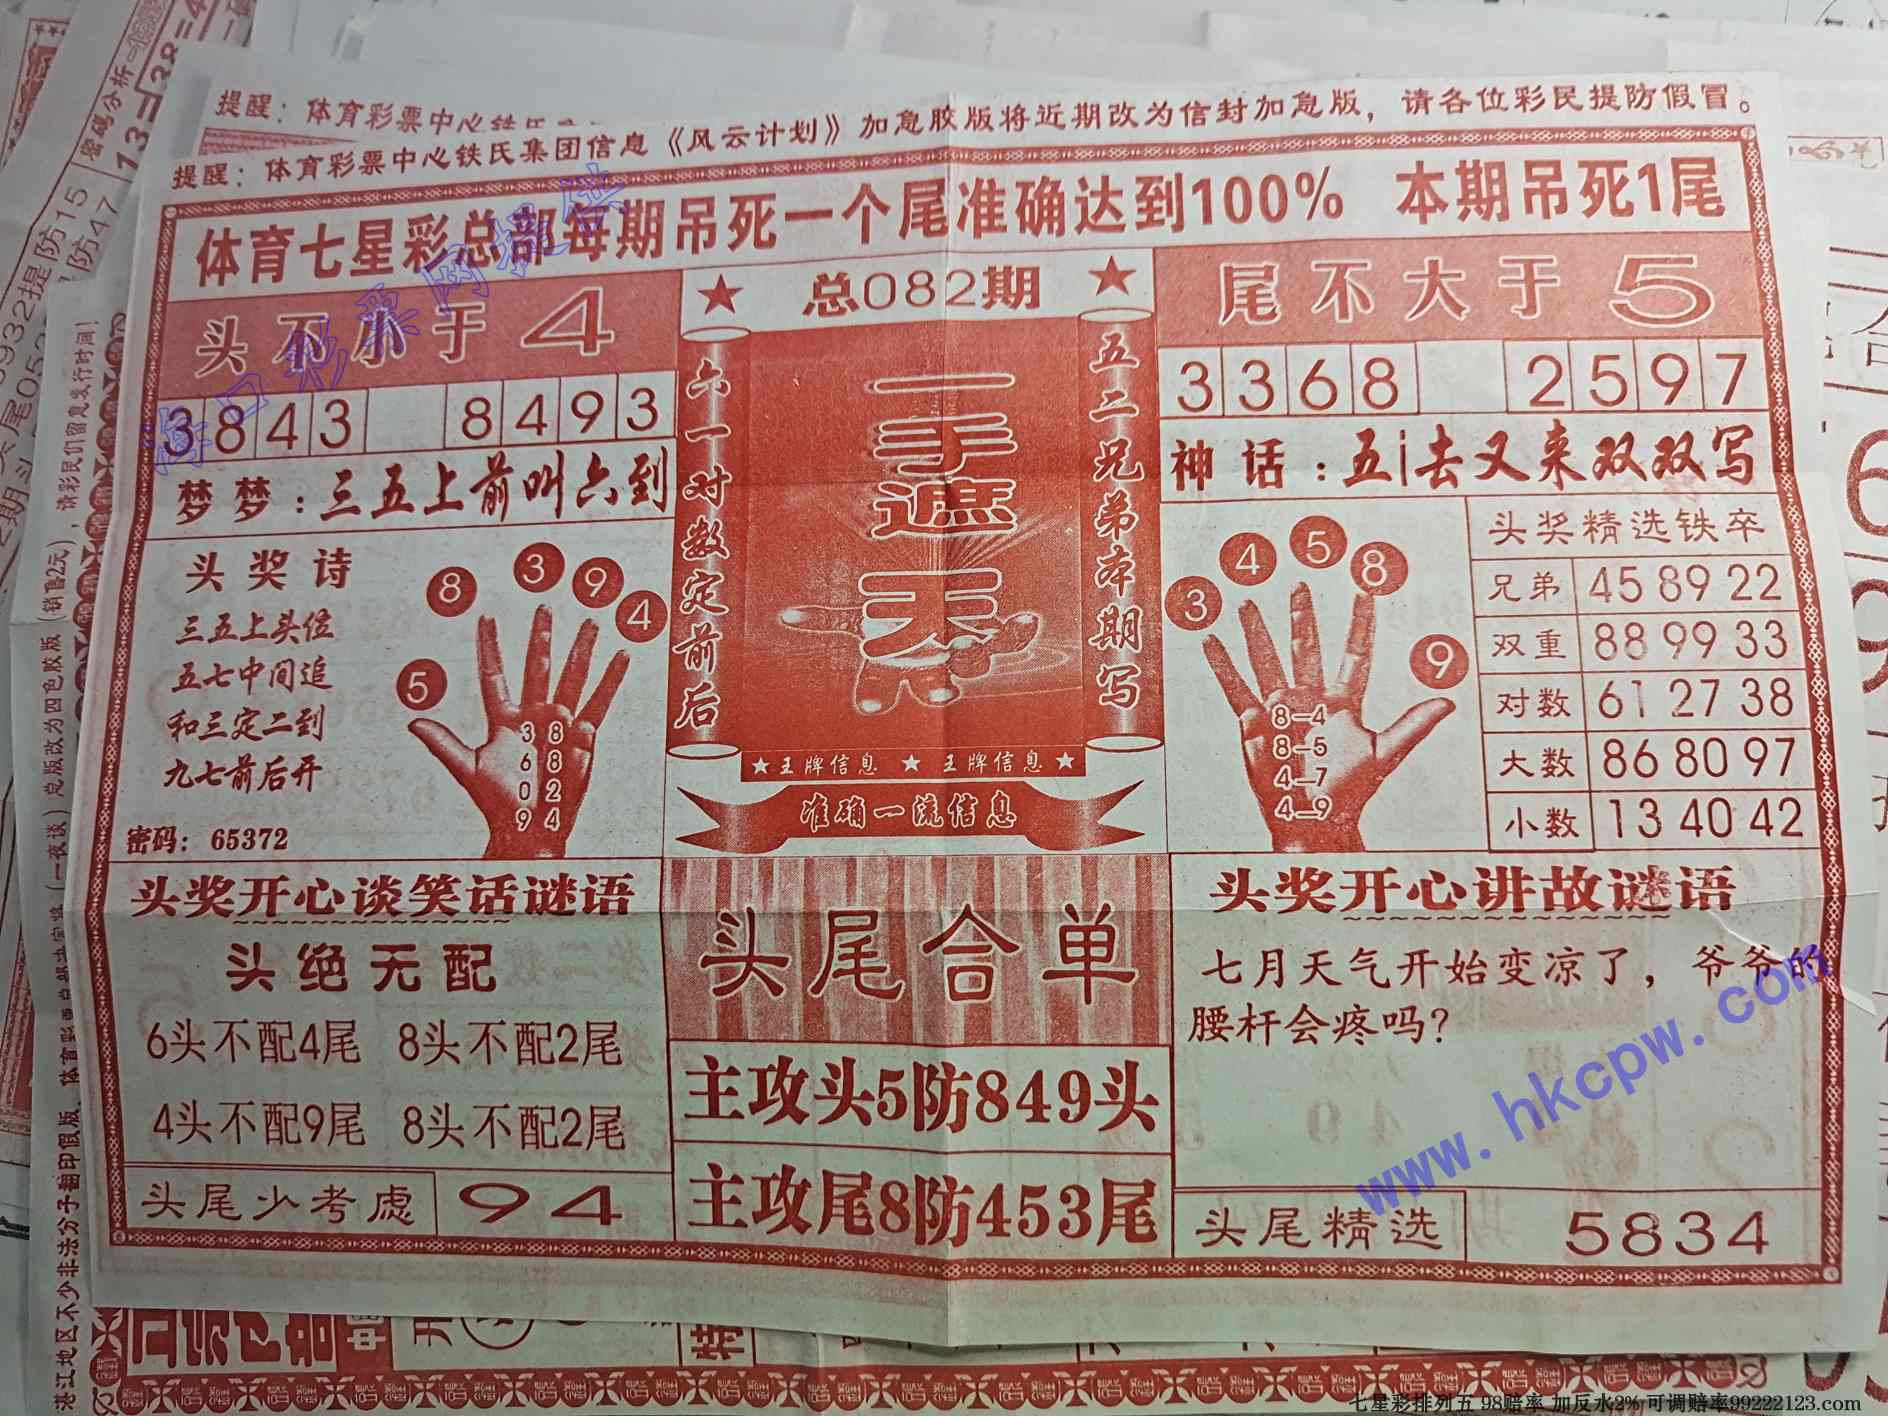 提醒：体育彩票中心铁氏集团信息《风云计划》加急胶版将近期改为信封加急版，请各位彩民提防假冒。
体育七星彩总部每期吊死一个尾准确达到100% 本期吊死1尾
头不小于4
★ 总082期 ★
尾不大于5
3843 8493
3368 2597
梦梦：三五上前叫六到
神话：五i去又来双双写
六一对数定前后
一手遮天
五二兄弟本期写
★王牌信息 ★ 王牌信息★
准确一流信息
头奖诗
三五上头位
五七中间追
和三定二到
九七前后开
密码：65372
5 8 3 9 4
3 8
6 8
0 2
9 4
3 4 5 8 9
8—4
8—5
4—7
4—9
头奖精选铁卒
兄弟 45 89 22
双重 88 99 33
对数 61 27 38
大数 86 80 97
小数 13 40 42
头奖开心谈笑话谜语
头绝无配
6头不配4尾 8头不配2尾
4头不配9尾 8头不配2尾
头尾少考虑 94
头尾合单
主攻头5防849头
主攻尾8防453尾
头奖开心讲故谜语
七月天气开始变凉了，爷爷的
腰杆会疼吗？
头尾精选 5834
海口彩票网提供
www.hkcpw.com
七星彩排列五 98赔率 加反水2% 可调赔率99222123.com